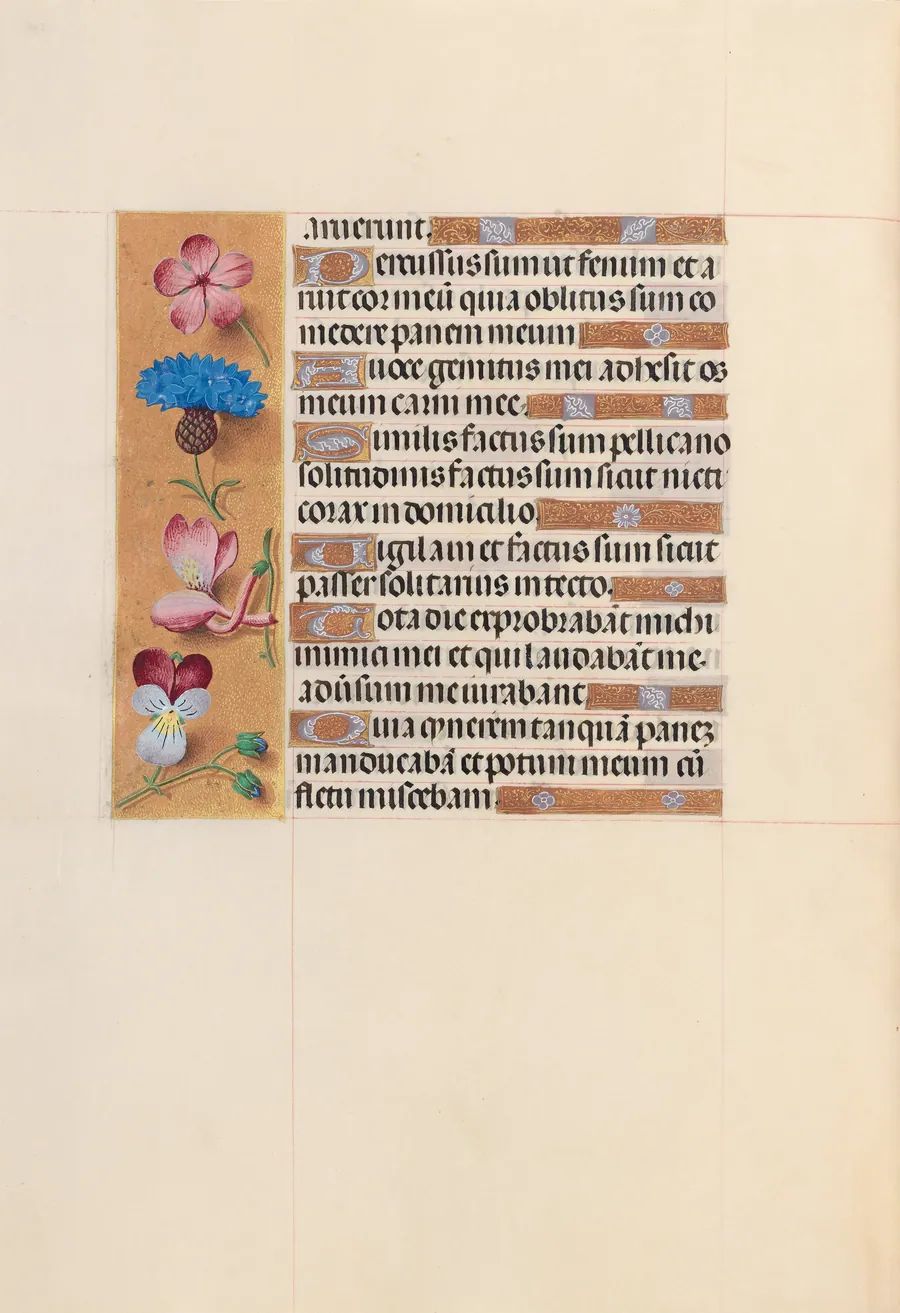 aruerunt.
Percussus sum ut fenum et a
ruit cor meū quia oblitus sum co
medere panem meum
A uoce gemitus mei adhesit os
meum carni mee.
Similis factus sum pellicano
solitudinis factus sum sicut nicti
corax in domicilio.
Vigilaui et factus sum sicut
passer solitarius in tecto.
Tota die exprobrabāt michi
inimici mei et qui laudabāt me
adūsum me iurabant
Quia cynerem tanquā panez
manducabā et potum meum cū
fletu miscebam.